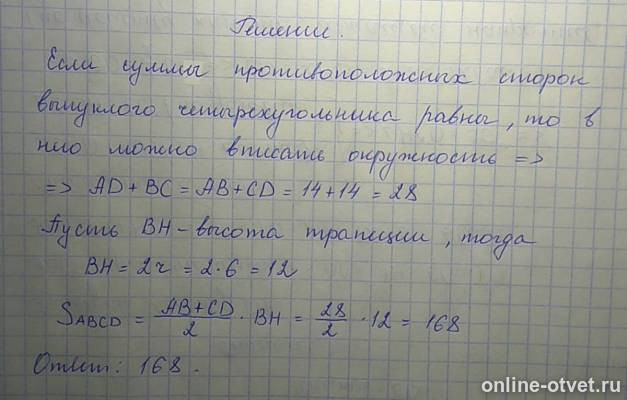 Решение.
Если суммы противоположных сторон
выпуклого четырехугольника равны, то в
него можно вписать окружность =>
=> AD + BC = AB + CD = 14 + 14 = 28
Пусть BH - высота трапеции, тогда
BH = 2r = 2 · 6 = 12
S_ABCD = (AB + CD)/2 · BH = 28/2 · 12 = 168
Ответ: 168.
online-otvet.ru